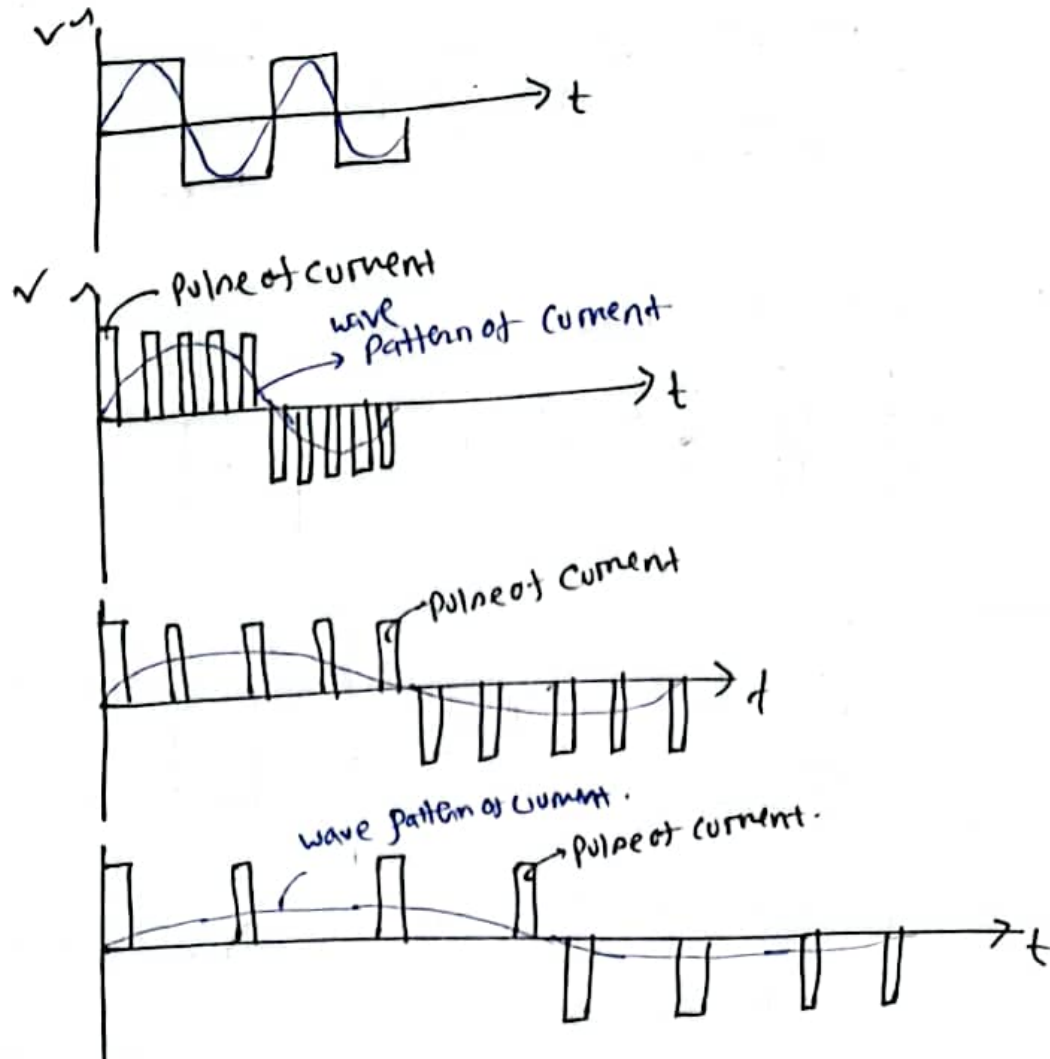 V
t
V
pulse of current
wave
pattern of current
t
pulse of current
t
wave pattern of current.
pulse of current.
t